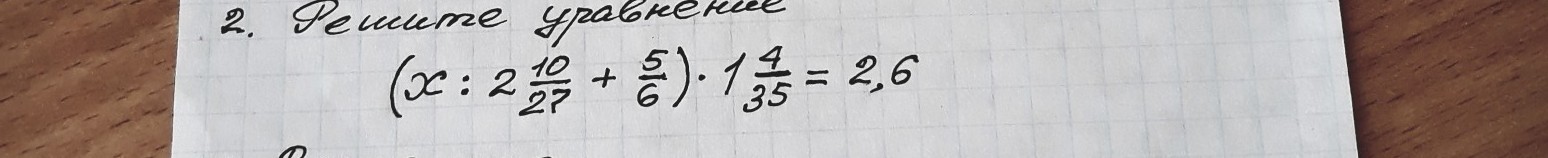 2. Решите уравнение
(x : 2 10/27 + 5/6) · 1 4/35 = 2,6